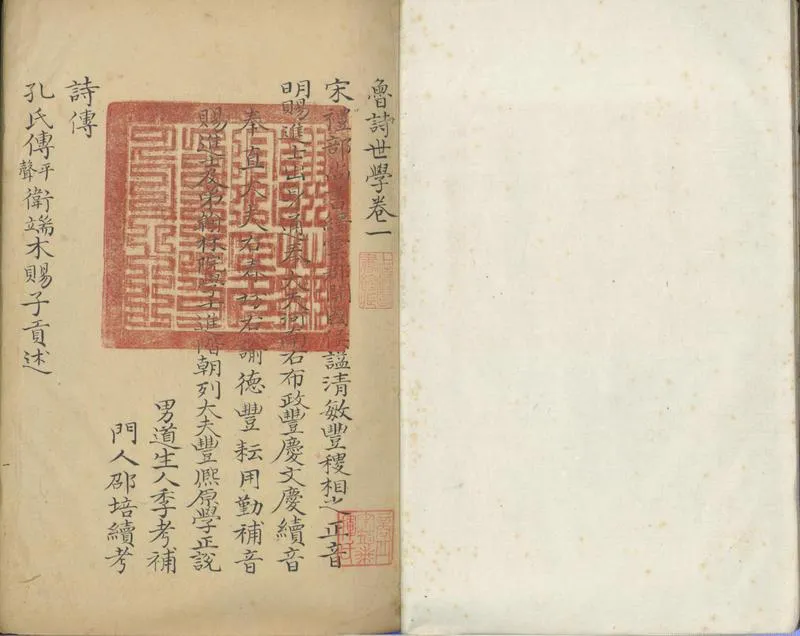 魯詩世學卷一
宋禮部尚書縉雲郡開國侯謚清敏豐稷相之正音
明賜進士出身通奉大夫河南右布政豐慶文慶續音
奉直大夫右春坊右諭德豐耘用勤補音
賜進士及第翰林院學士進階朝列大夫豐熈原學正說
男道生人季考補
門人邵培續考
詩傳
孔氏傳平聲衛端木賜子貢述